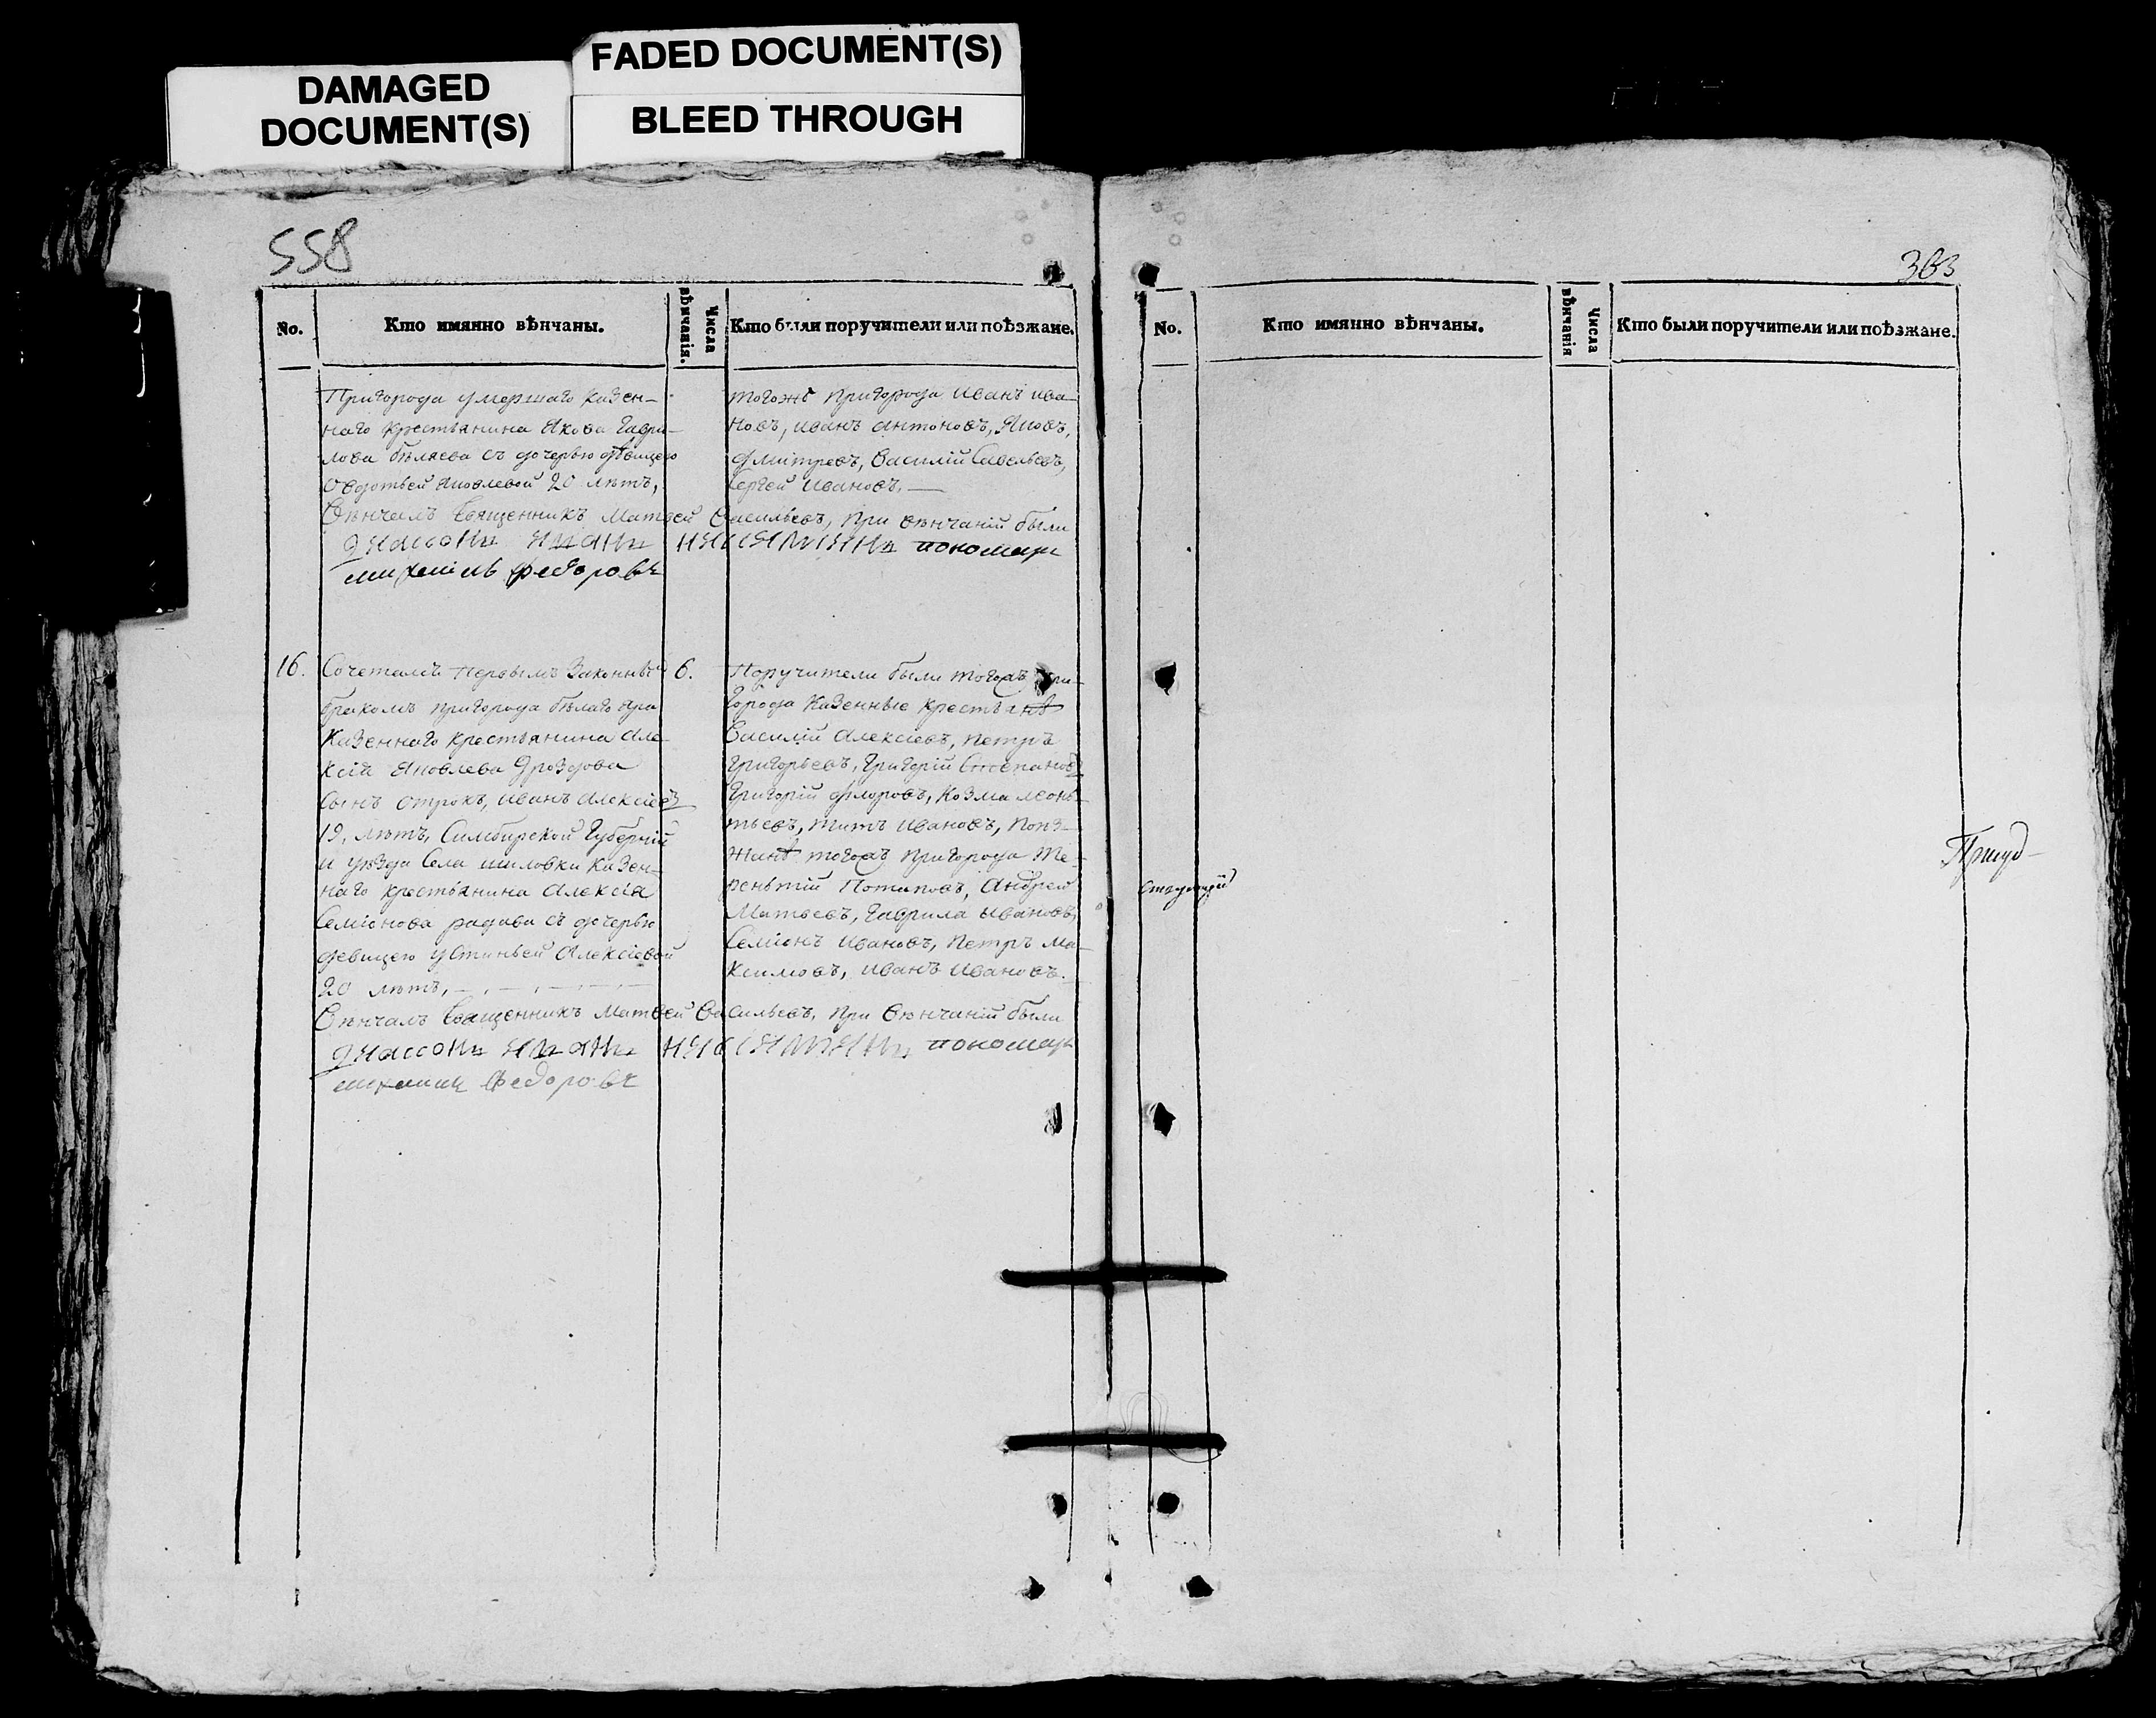 DAMAGED
DOCUMENT(S)
FADED DOCUMENT(S)
BLEED THROUGH
558
No.
Кто имянно вѣнчаны.
Числа
вѣнчанія.
Кто были поручители или поѣзжане.
Пригорода умершаго казен-
наго крестьянина Якова Гаври-
лова Бѣляева съ дочерью дѣвицею
Овдотьей Яковлевой 20 лѣтъ,
тогожъ пригорода Иванъ Ива-
новъ, Иванъ Антоновъ, Яковъ,
Дмитревъ, Василій Савельевъ,
Сергей Ивановъ.
Вѣнчалъ Священникъ Матвей Васильевъ, при вѣнчаніи были
пономарь
Михаилъ Федоровъ
16.
Сочетался первымъ законнымъ
бракомъ пригорода Бѣлаго Яра
Казеннаго крестьянина Але-
ксія Яковлева Дроздова
сынъ отрокъ, Иванъ Алексіевъ
19, лѣтъ, Симбирской Губерніи
и уѣзда Села Шиловки Казен-
наго крестьянина Алексія
Семіонова съ дочерью
девицею Устиньей Алексіевой
20 лѣтъ,
6.
Поручители были тогожъ при-
города Казенные крестьянѣ
Василій Алексіевъ, Петръ
Григорьевъ, Григорій Степановъ
Григорій Флоровъ, Козма Леонь-
тьевъ, Титъ Ивановъ, Поѣз-
жанѣ тогожъ пригорода Те-
рентій Потаповъ, Андрей
Матвеевъ, Гаврила Ивановъ,
Семіонъ Ивановъ, Петръ Ма-
ксимовъ, Иванъ Ивановъ.
Вѣнчалъ Священникъ Матвей Васильевъ, при вѣнчаніи были
пономарь
Михаилъ Федоровъ
303
No.
Кто имянно вѣнчаны.
Числа
вѣнчанія
Кто были поручители или поѣзжане.